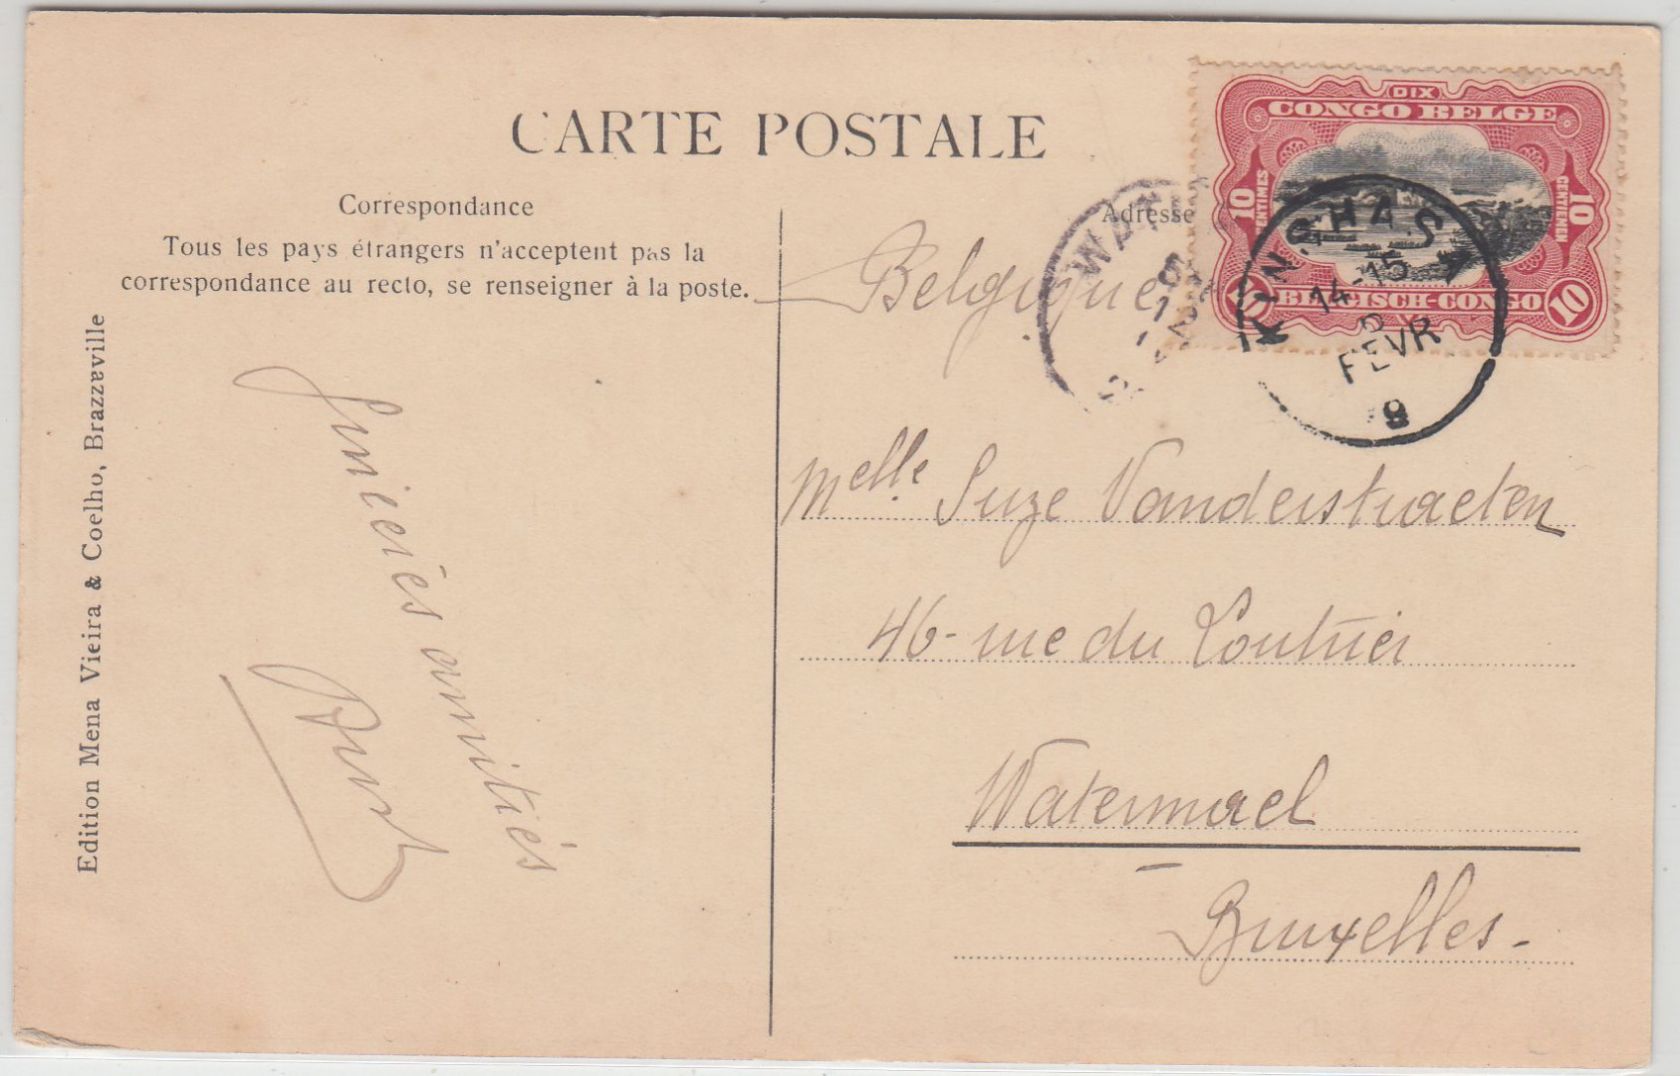 CARTE POSTALE
Correspondance
Tous les pays étrangers n'acceptent pas la
correspondance au recto, se renseigner à la poste.
Edition Mena Vieira & Coelho, Brazzaville
amitiés
Adresse
Belgique
Melle Suze Vanderstraeten
46 - rue du Loutrier
Watermael
Bruxelles -
DIX
CONGO BELGE
10 CENTIMES
10 CENTIEMEN
10 BELGISCH-CONGO 10
KINSHASA
14-15
FEVR
WAT